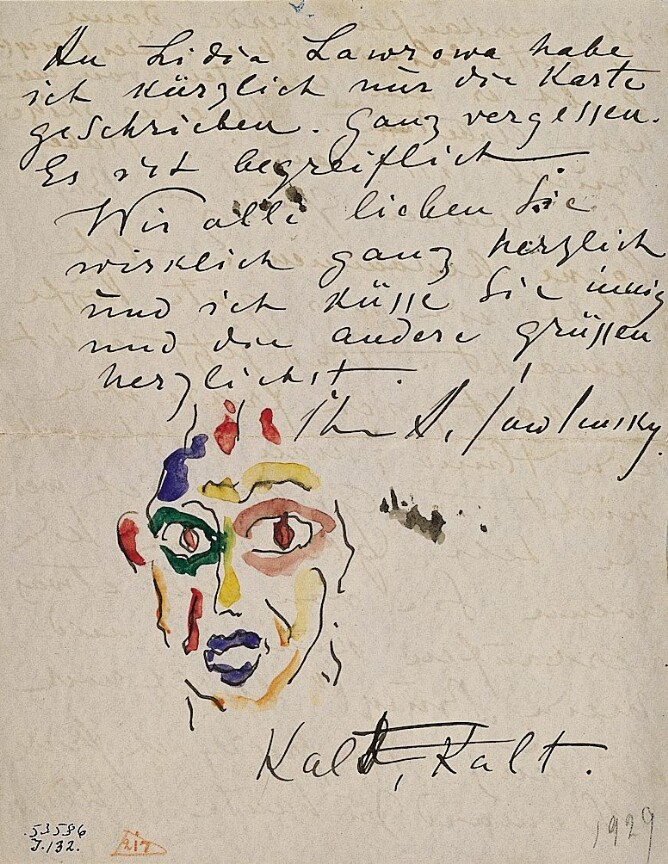 An Lidia Lawrowa habe
ich kürzlich nur die Karte
geschrieben. Ganz vergessen.
Es ist begreiflich
Wir alle lieben Sie
wirklich ganz herzlich
und ich küsse Sie innig
und die andere grüssen
herzlichst.
Ihr A. Jawlensky.
Kalt, Kalt.
53586
J.132.
217
1929